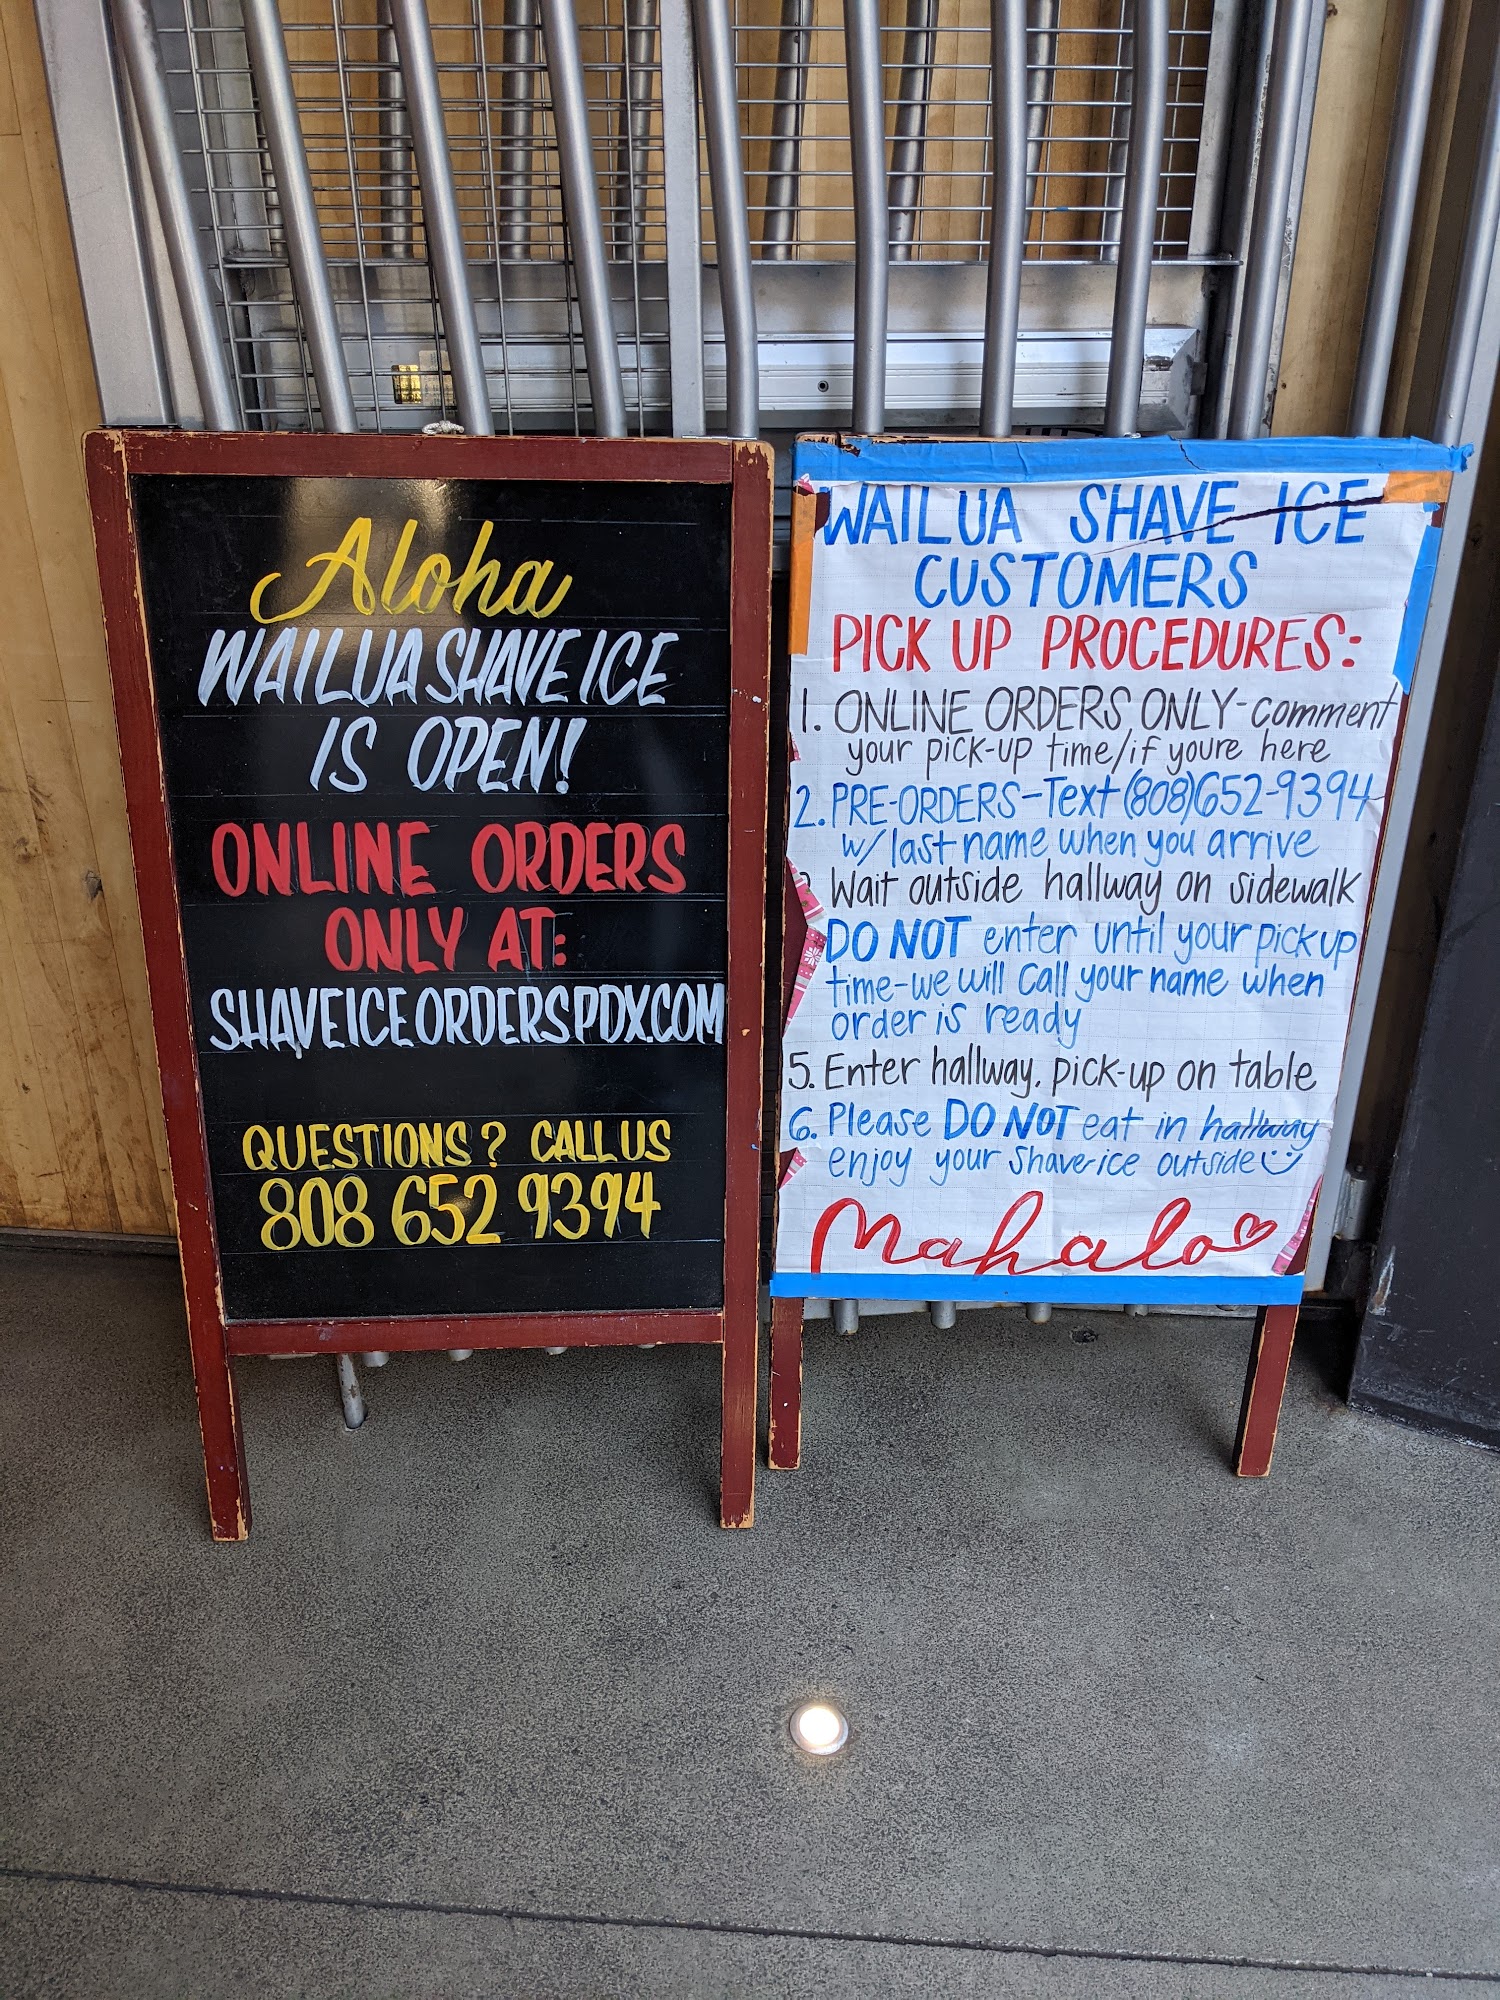 Aloha
WAILUA SHAVE ICE
IS OPEN!
ONLINE ORDERS
ONLY AT:
SHAVEICEORDERSPDX.COM
QUESTIONS? CALL US
808 652 9394
WAILUA SHAVE ICE
CUSTOMERS
PICK UP PROCEDURES:
1. ONLINE ORDERS ONLY-comment
your pick-up time/if youre here
2. PRE-ORDERS-Text (808)652-9394
w/ last name when you arrive
Wait outside hallway on sidewalk
DO NOT enter until your pick up
time-we will call your name when
order is ready
5. Enter hallway, pick-up on table
6. Please DO NOT eat in hallway
enjoy your shave-ice outside
Mahalo